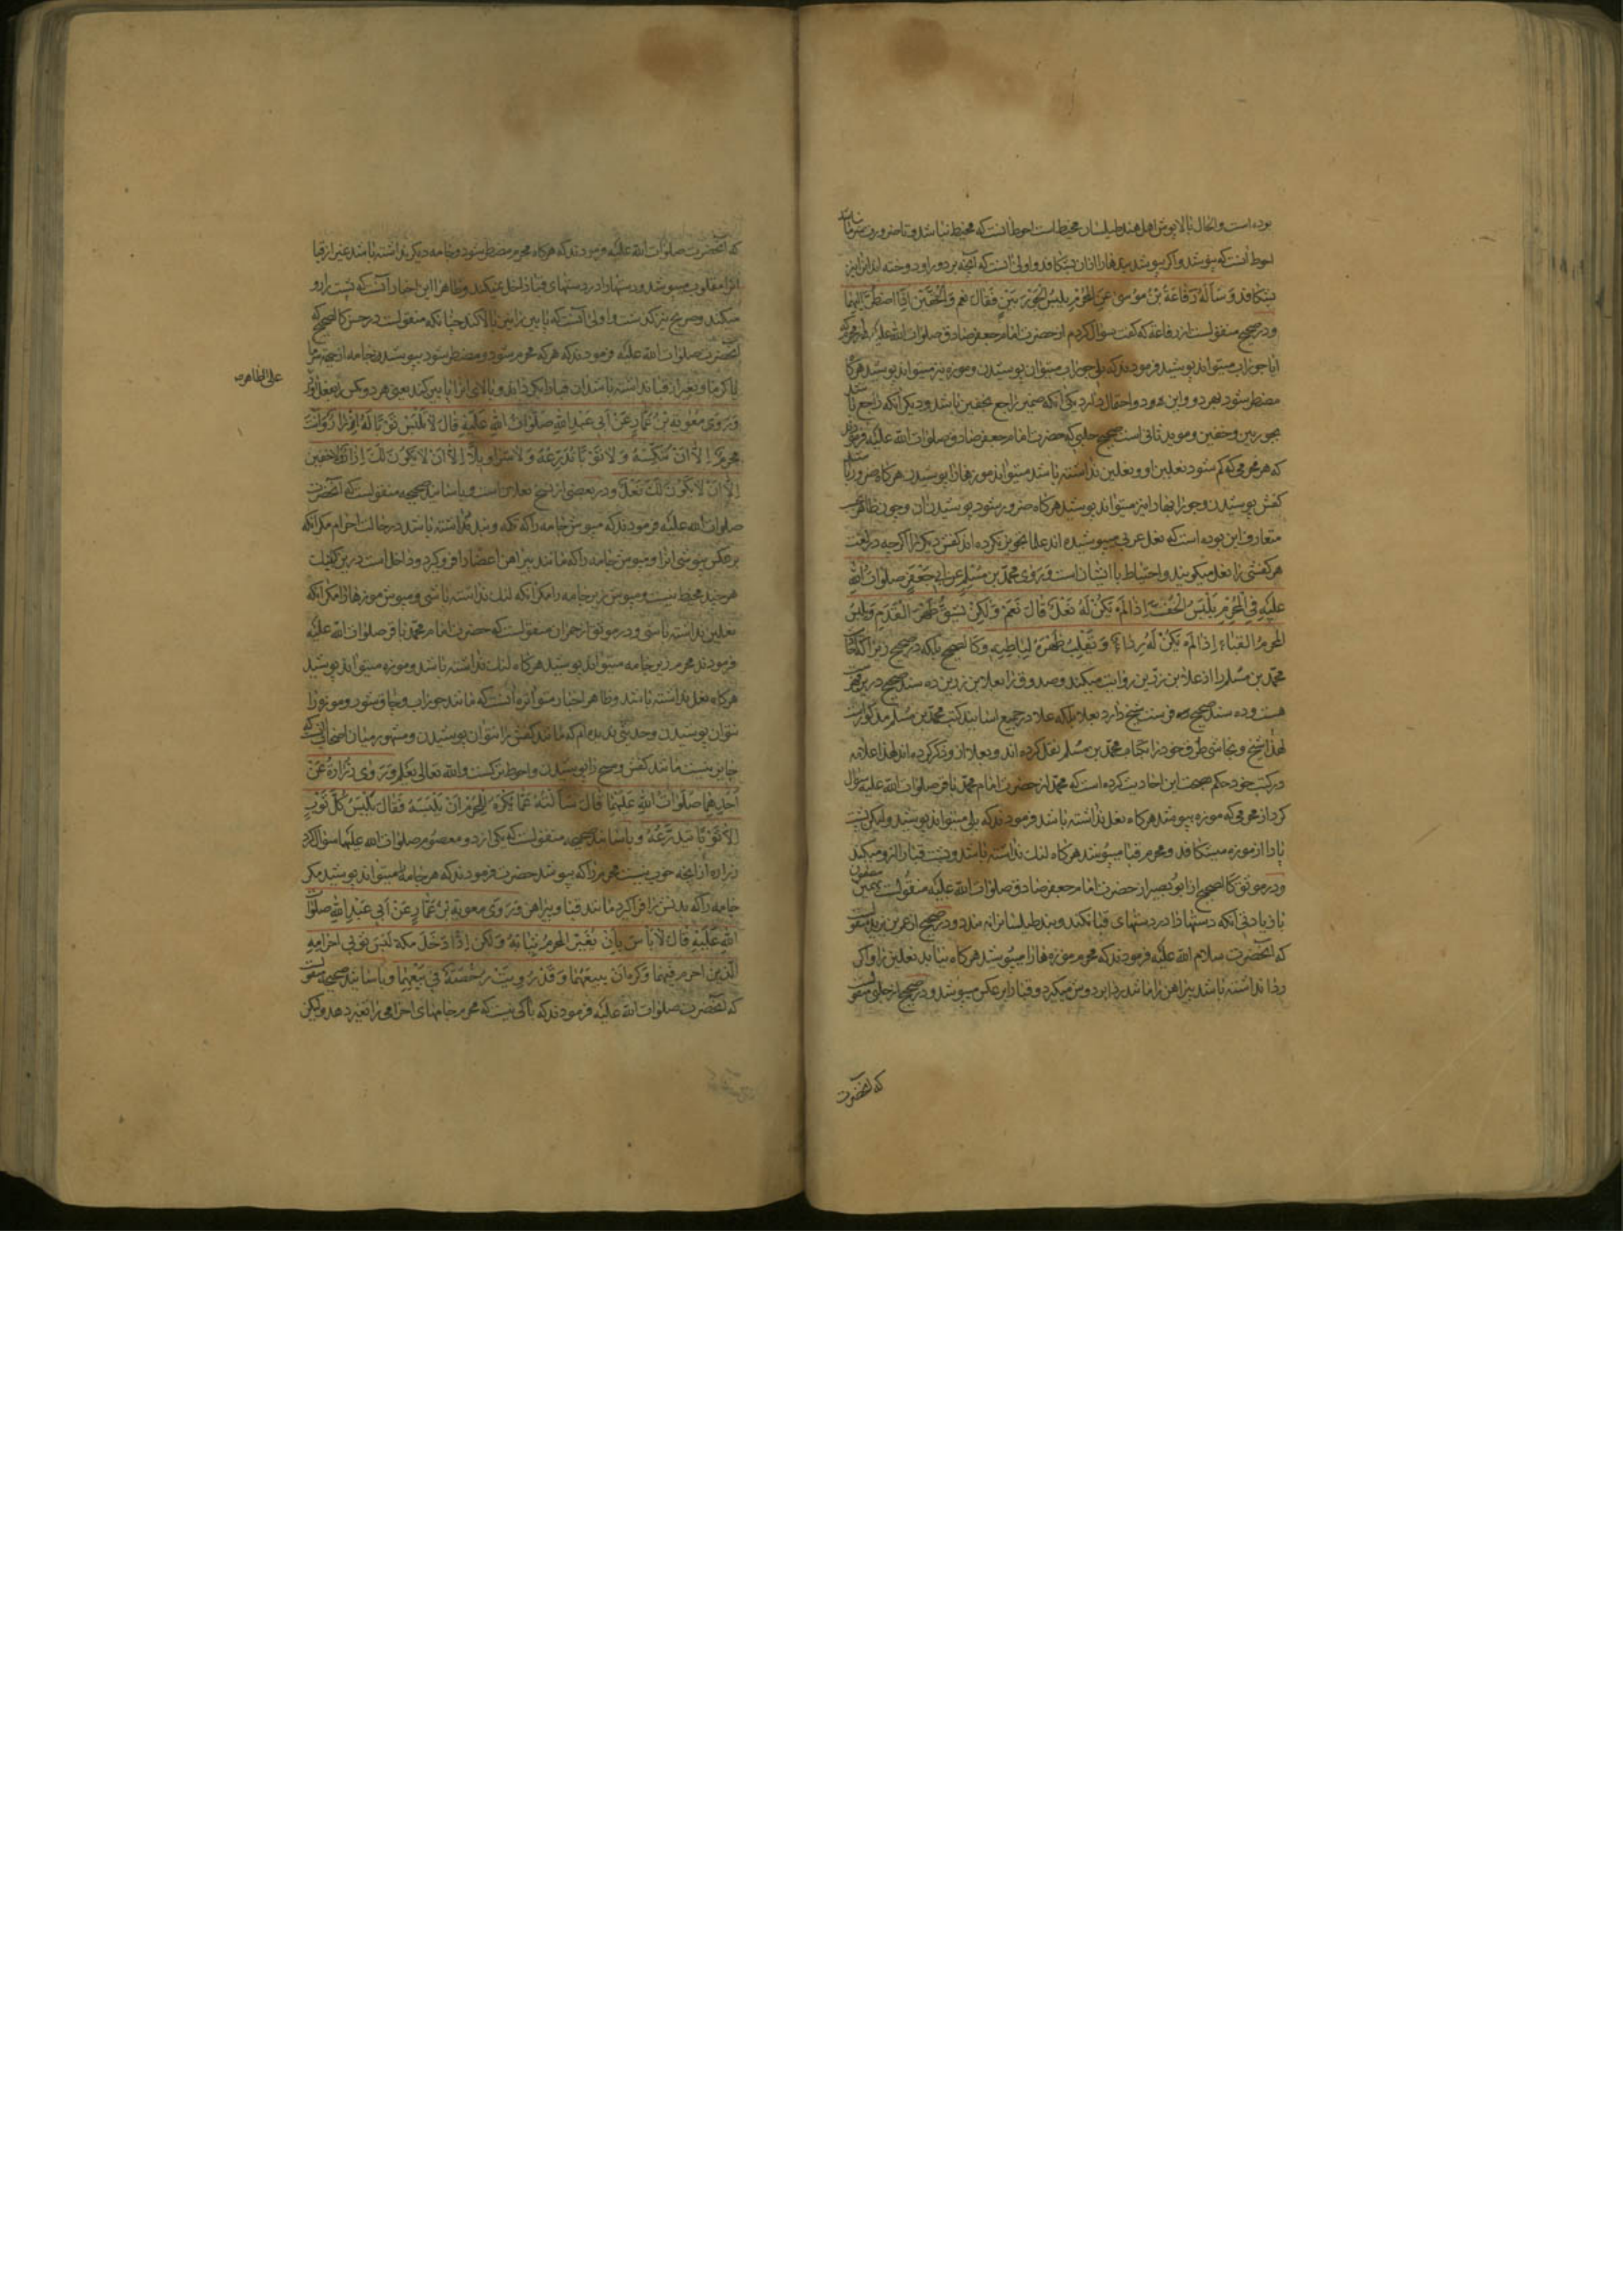 بوده است و الحال بالاپوش اهل هند و طیلسان مخیط است احوط آنست که مخیط نباشد و تا ضرور
احوط آنست که نپوشد و اگر بپوشد بندهارا ازان بشکافد و اولی آنست که آنچه بر دور او دوخته اند انرا نیز
بشکافد وَ سَأَلَهُ رِفَاعَةُ بْنُ مُوسىٰ عَنِ الْمُحْرِمِ يَلْبَسُ الْجَوْرَبَيْنِ فَقَالَ نَعَمْ وَ الْخُفَّيْنِ اِذَا اضْطُرَّ اِلَيْهِمَا
و در صحیح منقولست از رفاعه که گفت سؤال کردم از حضرت امام جعفر صادق صلوات الله علیه
ایا جوراب میتواند پوشید فرمودند که بلی جوراب میتوان پوشیدن و موزه نیز میتواند پوشید هرگاه
مضطر شود بهر دو و این دو احتمال دارد یکی آنکه ضمیر راجع بخفین باشد و دیگر آنکه راجع باشد
بجوربین و خفین و موید ثانی است صحیح حلبی که حضرت امام جعفر صادق صلوات الله علیه فرمودند
که هر محرمی که گم شود نعلین او و نعلین نداشته باشد میتواند موزهارا پوشیدن هرگاه ضرور باشد
کفش پوشیدن و جورابهارا نیز میتواند پوشید هرگاه ضرور شود پوشیدن آن و چون ظاهر
متعارف این بوده است که نعل عربی میپوشیده اند علما تجویز نکرده اند کفش دیگر را اگرچه در لغت
هر کفشی را نعل میگویند و احتیاط با ایشان است وَ رَوىٰ مُحَمَّدُ بْنُ مُسْلِمٍ عَنْ اَبِي جَعْفَرٍ صَلَوَاتُ اللهِ
عَلَيْهِ فِي الْمُحْرِمِ يَلْبَسُ الْخُفَّ اِذَا لَمْ يَكُنْ لَهُ نَعْلٌ قَالَ نَعَمْ وَ لٰكِنْ يَشُقُّ ظَهْرَ الْقَدَمِ وَ يَلْبَسُ
الْمُحْرِمُ الْقَبَاءَ اِذَا لَمْ يَكُنْ لَهُ رِدَاءٌ وَ يُقَلِّبُ ظَهْرَهُ لِبَاطِنِهِ و کالصحیح بلکه در صحیح زیرا که کتاب
محمد بن مسلم را از علا بن رزین روایت میکند و صدوق را بعلا بن رزین ده سند صحیح درین
هست و ده سند صحیح در فهرست شیخ دارد بعلا بلکه علا در جمیع اسانید کتب محمد بن مسلم مذکور است
لهذا شیخ و نجاشی طرق خود را بکتاب محمد بن مسلم نقل نکرده اند و بعلا ازو ذکر کرده اند لهذا علامه
در کتب خود حکم بصحت این احادیث کرده است که محمد از حضرت امام محمد باقر صلوات الله علیه سؤال
کرد از محرمی که موزه بپوشد هرگاه نعل نداشته باشد فرمودند که بلی میتواند پوشید ولیکن پشت
پا را از موزه میشکافد و محرم قبا میپوشد هرگاه لنگ نداشته باشد و پشت قبا را رو میکند
و در موثق کالصحیح از ابو بصیر از حضرت امام جعفر صادق صلوات الله علیه منقولست بهمین مضمون
با زیادتی آنکه دستها را در دستهای قبا نکند و بند طیلسانرا نبندد و در صحیح از عمر بن یزید منقولست
که آنحضرت سلام الله علیه فرمودند که محرم موزه هارا میپوشد هرگاه نیابد نعلین را و اگر
ردا نداشته باشد پیراهن را بردوش میگیرد و قبا را بر عکس میپوشد و در صحیح از حلبی منقولست
که آنحضرت
که آنحضرت صلوات الله علیه فرمودند که هرگاه محرم مضطر شود و جامه دیگر نداشته باشد غیر از قبا
انرا مقلوب میپوشد و دستهارا در دستهای قبا داخل نمیکند و ظاهرا این اخبار آنست که پشت را رو
میکند و صریح نیز گذشت و اولی آنست که پایین را بالا کند چنانکه منقولست در حسن کالصحیح که
آنحضرت صلوات الله علیه فرمودند که هر که محرم شود و مضطر شود بپوشیدن جامه از جهة سرما
یا گرما و بغیر از قبا نداشته باشد ان قبا را بگرداند و بالای انرا پایین کند یعنی هر دو عکس را بعمل آورد
علی الظاهر
وَ رَوىٰ مُعٰوِيَةُ بْنُ عَمَّارٍ عَنْ اَبِي عَبْدِ اللهِ صَلَوَاتُ اللهِ عَلَيْهِ قَالَ لاٰ تَلْبَسْ ثَوْباً لَهُ اَزْرَارٌ وَ اَنْتَ
مُحْرِمٌ اِلاّٰ اَنْ تُنَكِّسَهُ وَ لاٰ ثَوْباً تَدَرَّعُهُ وَ لاٰ سَرَاوِيلَ اِلاّٰ اَنْ لاٰ يَكُونَ لَكَ اِزَارٌ وَ لاٰ خُفَّيْنِ
اِلاّٰ اَنْ لاٰ يَكُونَ لَكَ نَعْلٌ و در بعضی از نسخ نعلان است و باسانید صحیحه منقولست که آنحضرت
صلوات الله علیه فرمودند که مپوش جامه را که تکمه و بند داشته باشد در حالت احرام مگر آنکه
بر عکس بپوشی انرا و مپوش جامه را که مانند پیراهن اعضا را فرو گیرد و داخل است درین
هرچند مخیط نیست و مپوش زیر جامه را مگر آنکه لنگ نداشته باشی و مپوش موزهارا مگر آنکه
نعلین نداشته باشی و در موثق از حمران منقولست که حضرت امام محمد باقر صلوات الله علیه
فرمودند محرم زیر جامه میتواند پوشید هرگاه لنگ نداشته باشد و موزه میتواند پوشید
هرگاه نعل نداشته باشد و ظاهر اخبار متواتره آنست که مانند جوراب و چاقشور و موزه را
نتوان پوشیدن و حدیثی ندیده ام که مانند کفش را نتوان پوشیدن و مشهور میان اصحاب آنست که
جایز نیست مانند کفش و مسح را پوشیدن و احوط ترکست و الله تعالی یعلم وَ رَوىٰ زُرَارَةُ عَنْ
اَحَدِهِمَا صَلَوَاتُ اللهِ عَلَيْهِمَا قَالَ سَأَلْتُهُ عَمَّا يُكْرَهُ لِلْمُحْرِمِ اَنْ يَلْبَسَهُ فَقَالَ يَلْبَسُ كُلَّ ثَوْبٍ
اِلاّٰ ثَوْباً يَتَدَرَّعُهُ و باسانید صحیحه منقولست که یکی از دو معصوم صلوات الله علیهما سؤال کرد
زراره از آنچه خوب نیست محرم را که بپوشد حضرت فرمودند که هر جامه میتواند پوشید مگر
جامه را که بدنش را فرا گیرد مانند قبا و پیراهن وَ رَوىٰ مُعٰوِيَةُ بْنُ عَمَّارٍ عَنْ اَبِي عَبْدِ اللهِ صَلَوَاتُ
اللهِ عَلَيْهِ قَالَ لاٰ بَأْسَ بِاَنْ يُغَيِّرَ الْمُحْرِمُ ثِيَابَهُ وَ لٰكِنْ اِذَا دَخَلَ مَكَّةَ لَبِسَ ثَوْبَيْ اِحْرَامِهِ
الَّذَيْنِ اَحْرَمَ فِيهِمَا وَ كُرِهَ اَنْ يَبِيعَهُمَا وَ قَدْ رُوِيَتْ رُخْصَةٌ فِي بَيْعِهِمَا و باسانید صحیحه منقولست
که آنحضرت صلوات الله علیه فرمودند که باکی نیست که محرم جامهای احرامی را تغییر دهد ولیکن